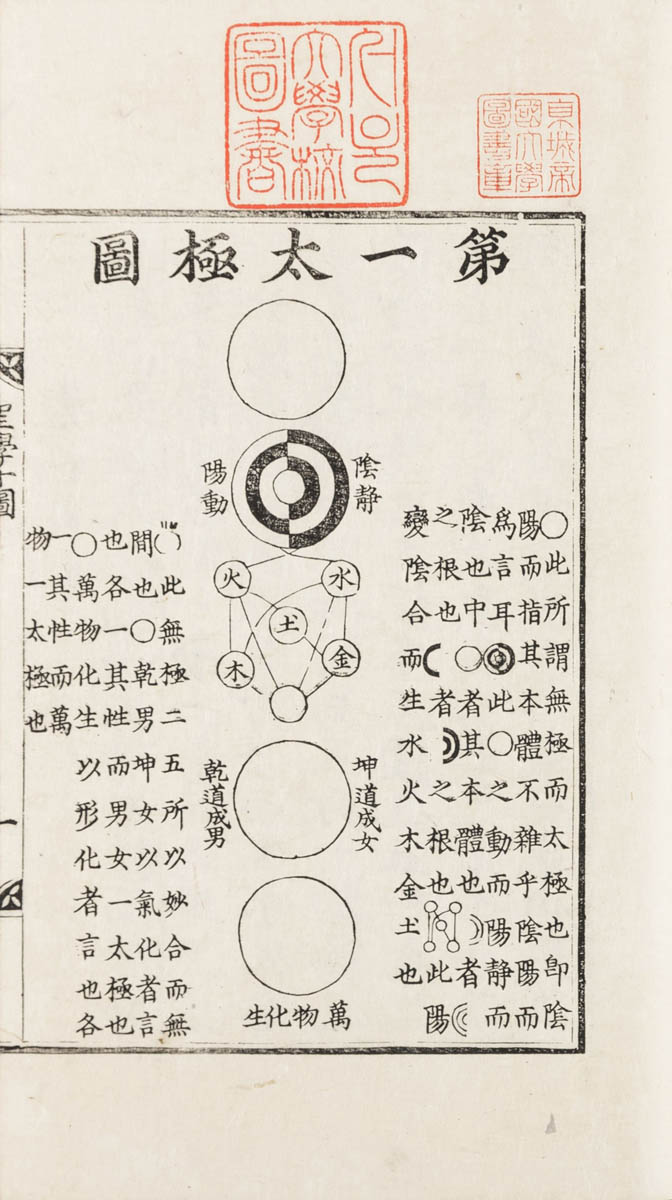 서울
大學校
圖書
京城帝
國大學
圖書章
第一太極圖
○此所謂無極而太極也卽陰
陽而指其本體不雜乎陰陽而
爲言耳此○之動而陽靜而
陰也中○者其本體也者
之根也者之根也此陽
變陰合而生水火木金土也
陰靜
陽動
水
火
土
金
木
坤道成女
乾道成男
萬物化生
此無極二五所以妙合而無
間也○乾男坤女以氣化者言
也各一其性而男女一太極也
○萬物化生以形化者言也各
一其性而萬
物一太極也
聖學十圖
一